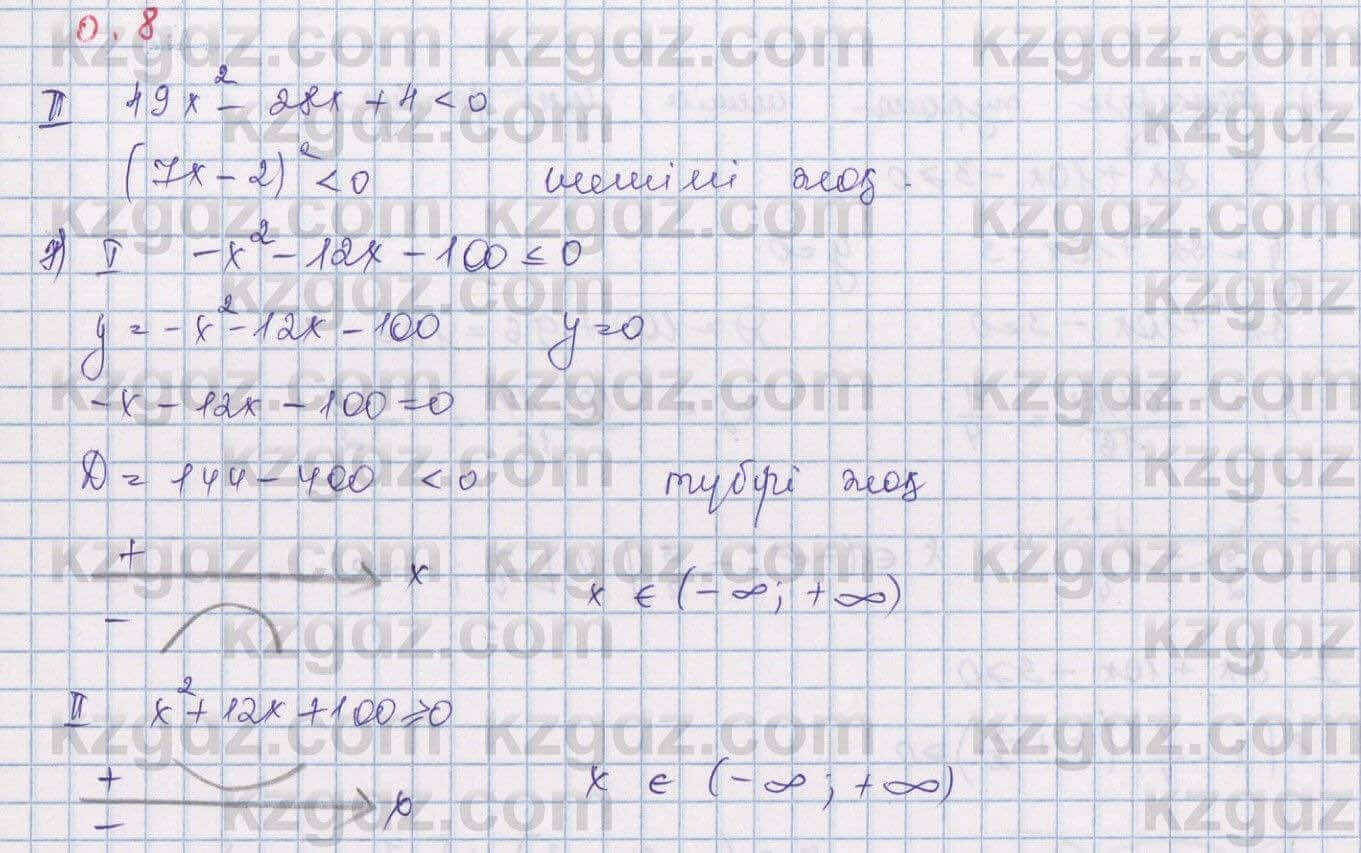 0.8
II 49x² - 28x + 4 < 0
(7x - 2)² < 0 шешімі жоқ.
I -x² - 12x - 100 ≤ 0
y = -x² - 12x - 100 y = 0
-x - 12x - 100 = 0
D = 144 - 400 < 0 түбірі жоқ
+
x
x ∈ (-∞; +∞)
-
II x² + 12x + 100 ≥ 0
+
x ∈ (-∞; +∞)
-
x
kzgdz.com